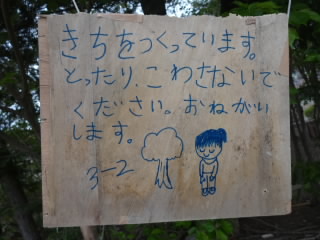 きちをつくっています。
とったり、こわさないで
ください。おねがい
します。
3-2